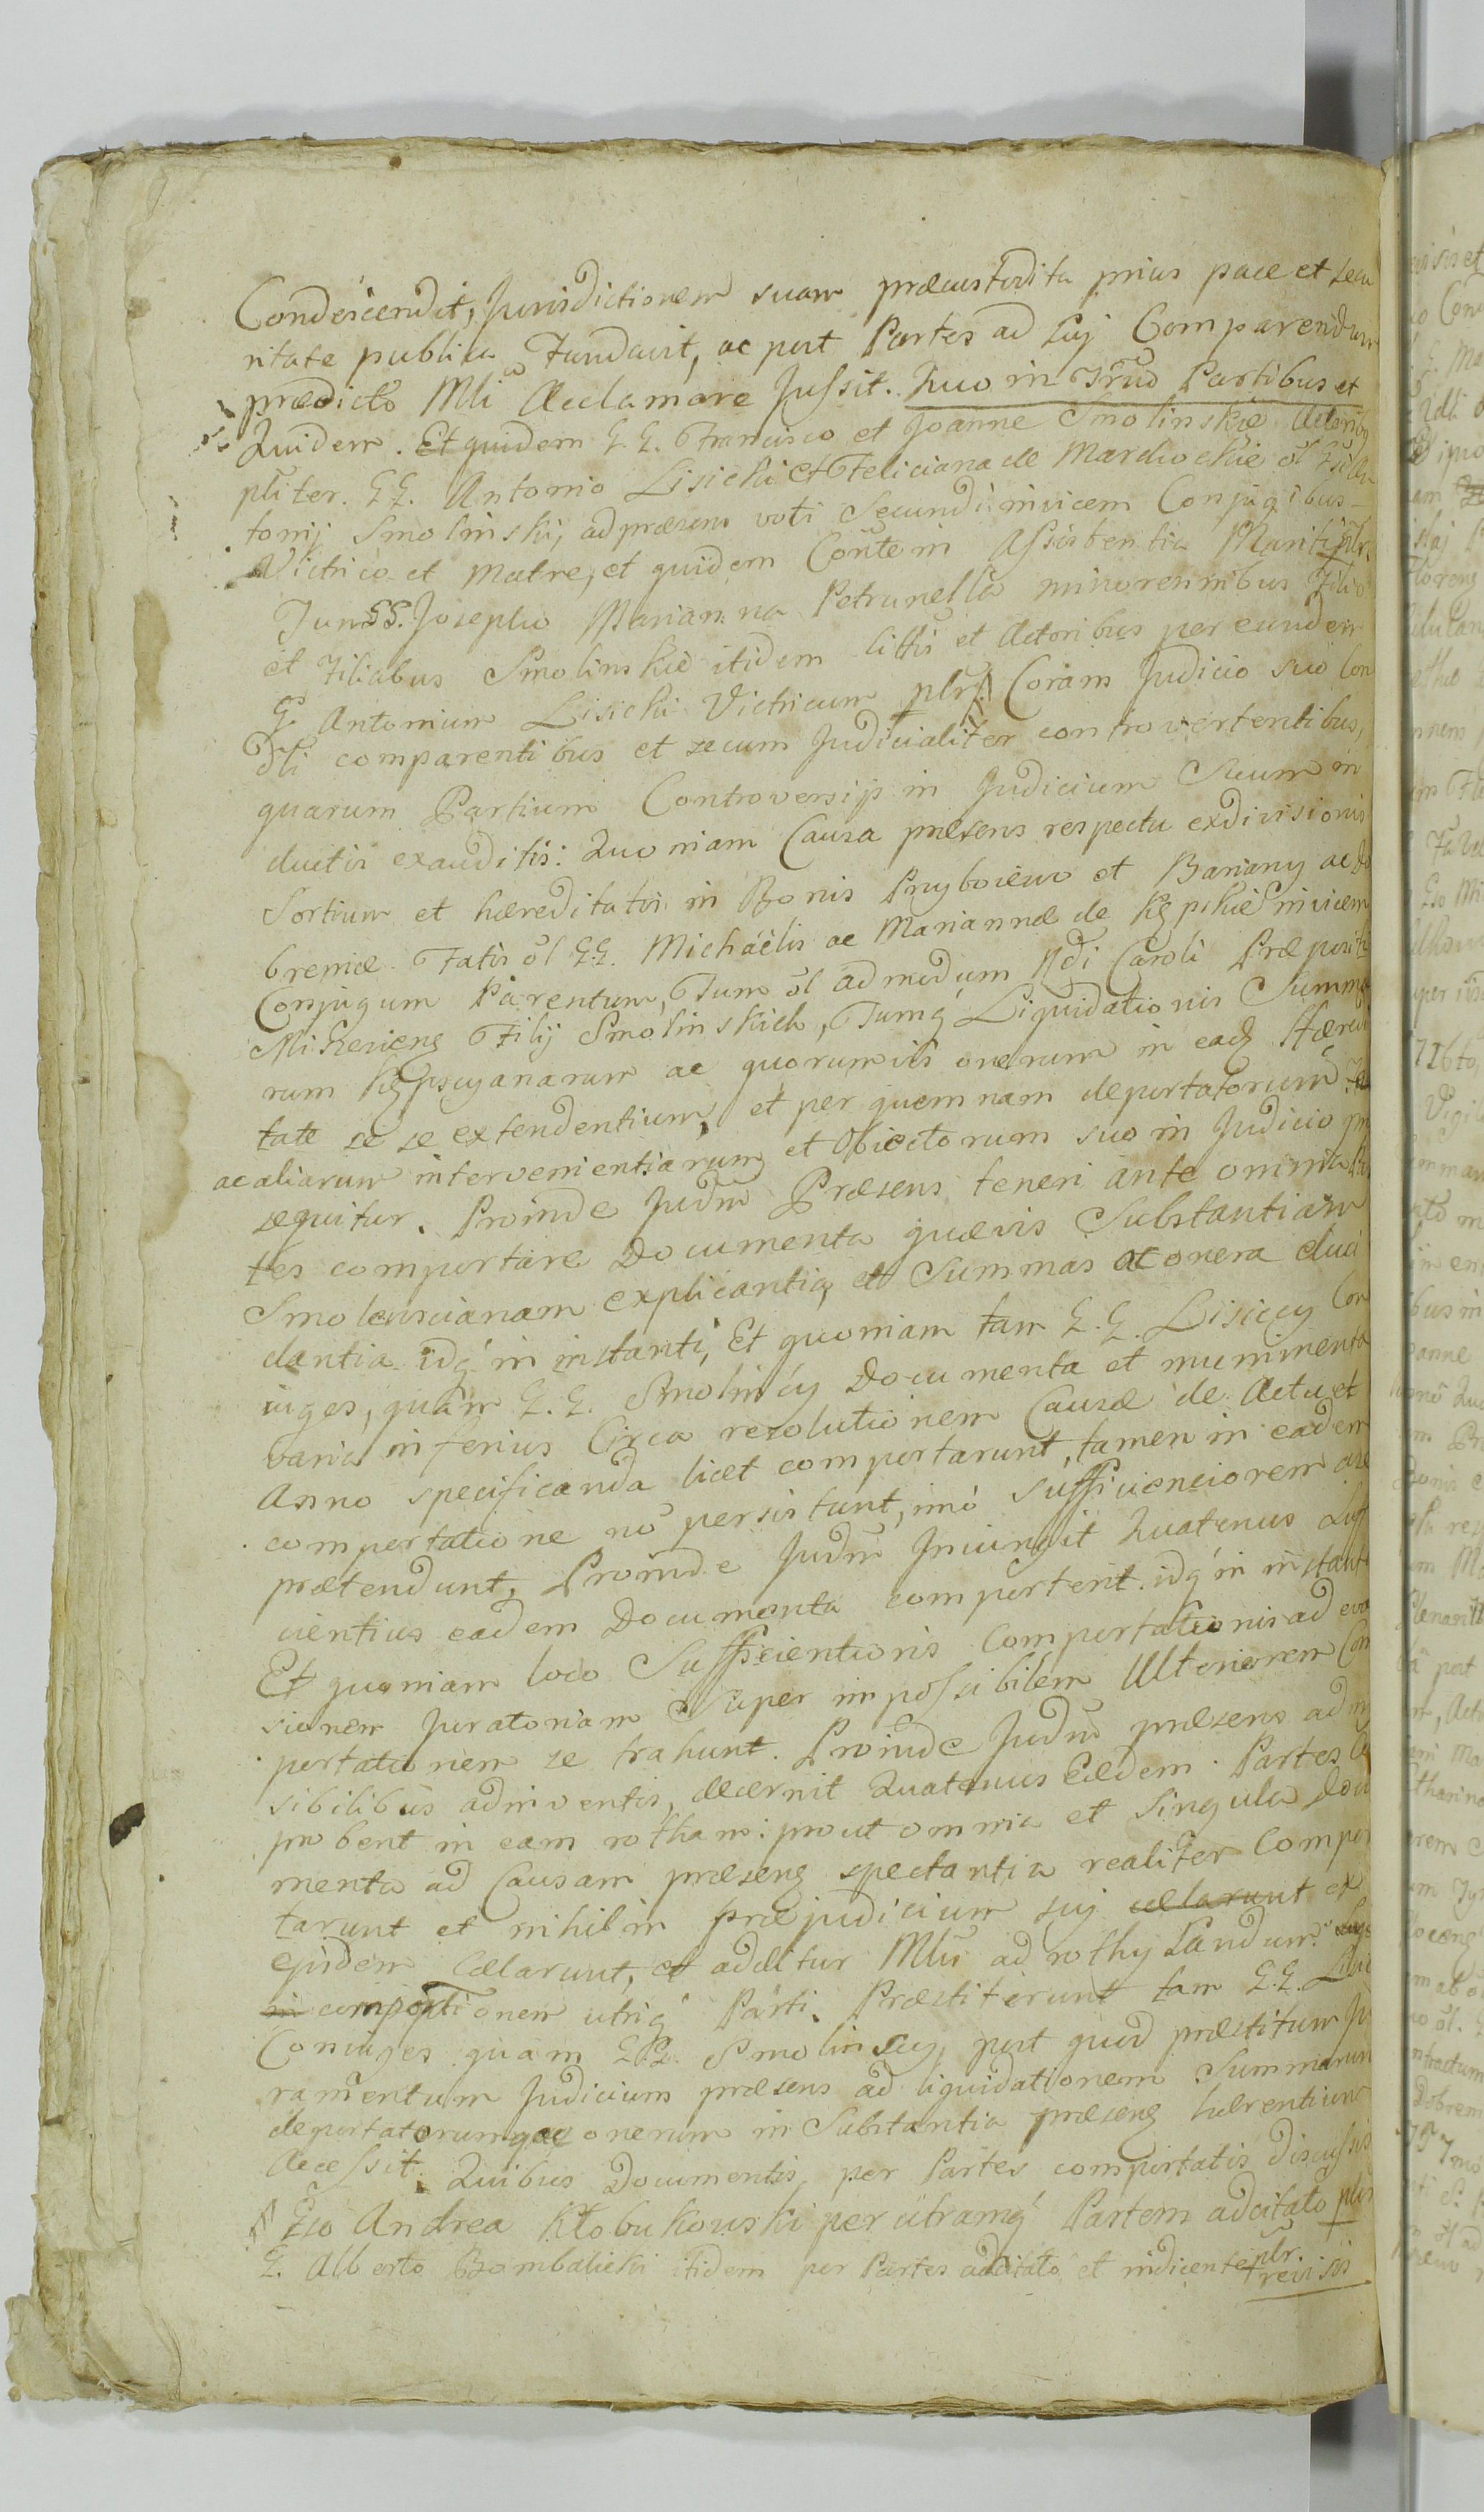 Condescendit, Jurisdictionem suam præcustodita prius pace et secu
ritate publica Fundavit, ac post Partes ad Sui Comparendum
prædicto Mli Acclamare Jussit. Quo in Trno Partibus et
Quidem. Et quidem G.G. Francisco et Joanne Smolinskie Actoribq
pliter. G.G. Antonio Lisicki et Feliciana de Mardwockie ol
tonij Smolinski, ad præsens voti Secundi invicem Conjugibus
Vitrico et Matre, et quidem Conte in Assistentia Mariti plr.
Tum GG. Josepho Marianna Petrunella minorennibus Filio
et Filiabus Smolinskie itidem Cittis et Actoribus per eundem
G. Antonium Lisicki Victricum plr. Coram Judicio suo Con
dsti comparentibus et secum Judicialiter controvertentibus,
quarum Partium Controversijs in Judicium Suum in
ductis exauditis: Quoniam Causa præsens respectu exdivisionis
Sortium et hæreditatis in Bonis Przyboiewo et Bariany ac Do
bremæ Fatis ol G.G. Michaelis ac Mariannæ de Kępskie invicem
Conjugum Parentum, Tum ol admodum Rdi Caroli Præpositi
Miszevieng Filij Smolinskich, Tumq Liquidationis Summa
rum Kępscyanarum ac quorumvis onerum in eadg Hæredi
tate se se extendentium, et per quemnam deportatorum
ac aliarum intervenientiarum et Obiectorum suo in Judicio pro
sequitur. Proinde Judm Præsens teneri ante omnia Par
tes comportare Documenta quævis Substantiam
Smolenscianam explicantia, et Summas ac onera eluci
dantia idq in instanti, Et quoniam tam G.G. Lisiccy Con
iuges, quam G.G. Smolinscy Documenta et munimenta
varia inferius Circa resolutionem Causæ de Actu et
Anno specificanda licet comportarunt, tamen in eadem
comportatione no persistunt, imo sufficienciorem
prætendunt, Proinde Judm Iniungit Quatenus Suffi
cientius eadem Documenta comportent. idq in instanti
Et quoniam loco Sufficientioris Comportationis ad eva
sionem Juratoriam Super impossibilem Ulteriorem Com
portationem se trahunt. Proinde Judm præsens
sibilibus adinventis, decernit Quatenus Eædem Partes
probent in eam rotham: prout omnia et Singula Docu
menta ad Causam præseng spectantia realiter Compor
tarunt et nihil in præjudicium sui celarunt et
ejusdem Celarunt, et additur Mlis ad rothy Landum
in comportionem utriq Parti. Præstiterunt tam G.G. Lisic
Coniuges quam G.G. Smolinscy, post quod præstitum Ju
ramentum Judicium præsens ad liquidationem Summarum
deportatorumq ac onerum in Substantia præseng hærentium
Accessit. Quibus Documentis per Partes comportatis discussis
Gso Andrea Kłobukowski per utramq Partem adcitato plr
G. Alberto Bombalicki itidem per Partes adcitato et indicente plr.
revisis